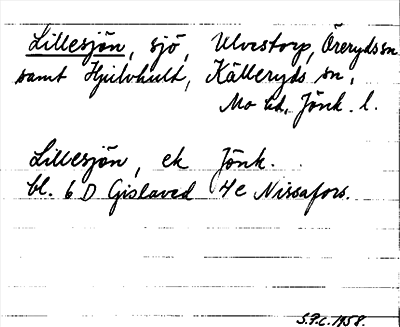 Lillesjön, sjö, Ulvestorp, Öreryds sn
samt Hjulhult, Kålleryds sn,
Mo hd, Jönk. l.
Lillesjön, ek Jönk.
bl. 6 D Gislaved 4e Nissafors.
S.P.C. 1958.